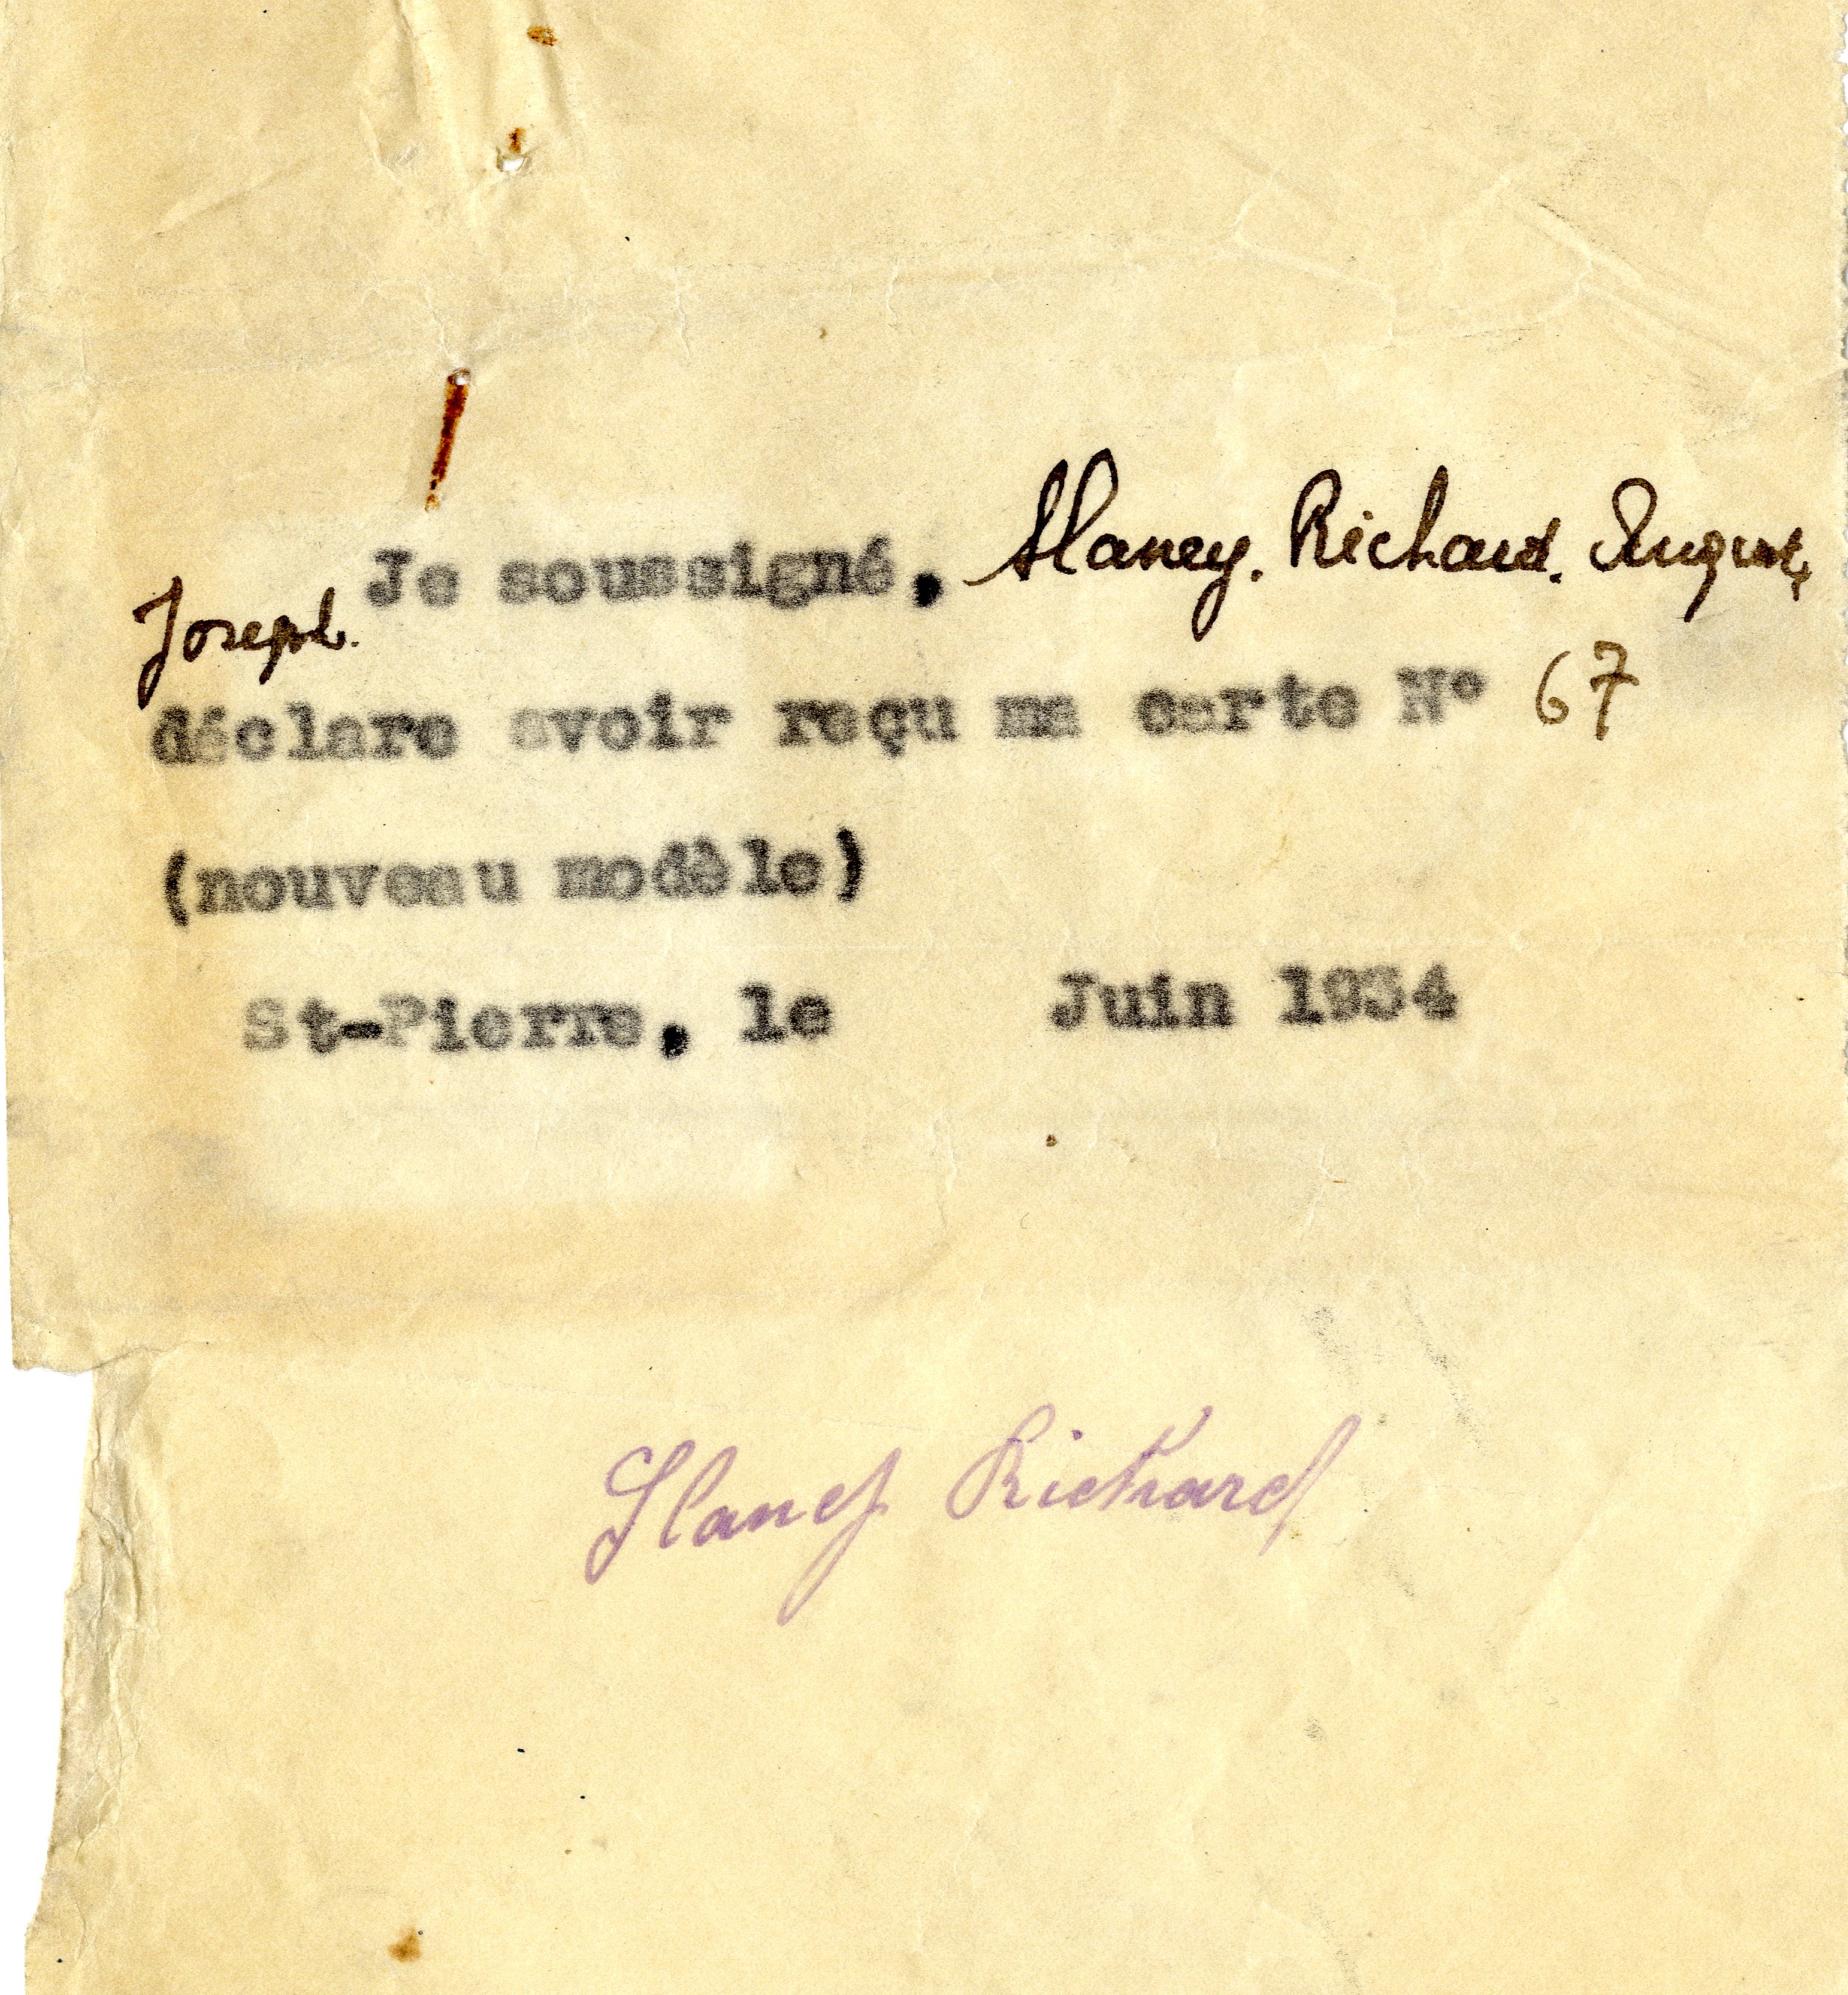 Je soussigné, Slaney. Richard. August,
Joseph.
déclare avoir reçu ma carte N° 67
(nouveau modèle)
St-Pierre, le Juin 1934
Slaney Richard